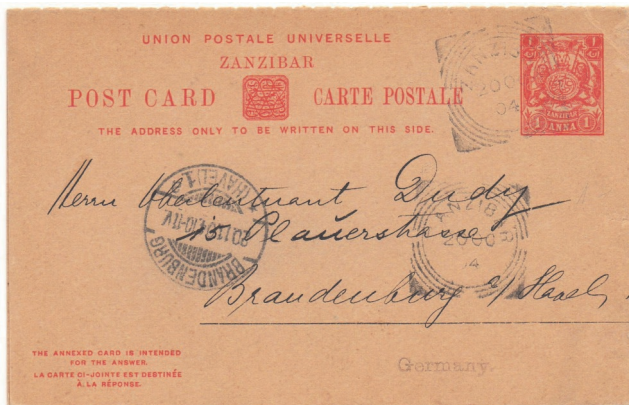 UNION POSTALE UNIVERSELLE
ZANZIBAR
POST CARD CARTE POSTALE
THE ADDRESS ONLY TO BE WRITTEN ON THIS SIDE.
1 1
ZANZIBAR
1 ANNA 1
ZANZIBAR
20 OC
04
Herrn Oberleutnant Dudy
15 Plauerstrasse
Brandenburg a/Havel
BRANDENBURG
(HAVEL) 1
ZANZIBAR
20 OC
4
Germany.
THE ANNEXED CARD IS INTENDED
FOR THE ANSWER.
LA CARTE CI-JOINTE EST DESTINÉE
À LA RÉPONSE.